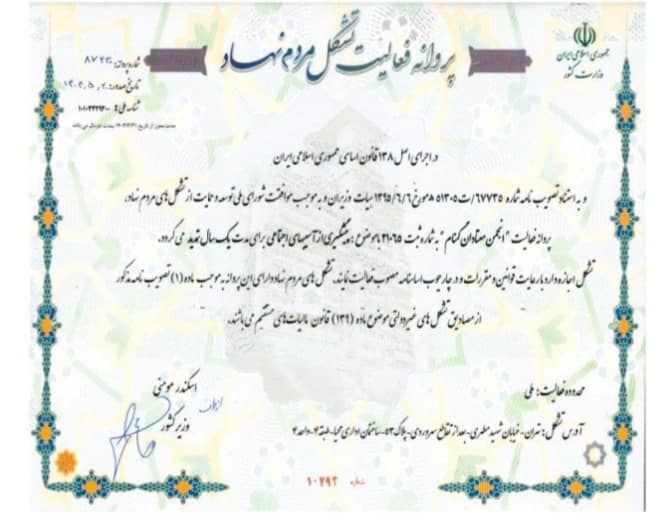 جمهوری اسلامی ایران
وزارت کشور
پروانه فعالیت تشکل مردم نهاد
شماره پروانه: ۸۷۲۳۰
تاریخ صدور: ۱۴۰۴،۵،۲۰
شناسه ملی:
در اجرای اصل ۱۳۸ قانون اساسی جمهوری اسلامی ایران
و به استناد تصویب نامه شماره ۶۷۷۳۵/ت۵۱۳۰۵ ه مورخ ۱۳۹۵/۶/۶ هیات وزیران و به موجب موافقت شورای ملی توسعه و حمایت از تشکل های مردم نهاد،
پروانه فعالیت "انجمن معتادان گمنام" به شماره ثبت ۲۱۰۶۵ با موضوع: پیشگیری از آسیبهای اجتماعی برای مدت یک سال تمدید می گردد.
تشکل اجازه دارد با رعایت قوانین و مقررات و در چارچوب اساسنامه مصوب فعالیت نماید. تشکل های مردم نهاد دارای این پروانه به موجب ماده (۱) تصویب نامه مذکور
از مصادیق تشکل های غیردولتی موضوع ماده (۱۳۹) قانون مالیات های مستقیم می باشند.
محدوده فعالیت: ملی
آدرس تشکل: تهران - خیابان شهید مطهری - بعد از تقاطع سهروردی - پلاک ۵۳ - ساختمان اداری محیا - طبقه ۴ - واحد ۴
اسکندر مومنی
وزیر کشور
شماره ۱۰۶۹۲